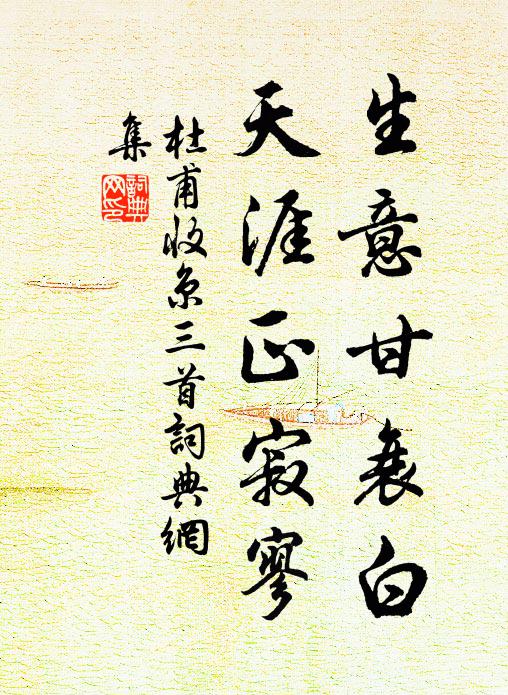 生意甘衰白
天涯正寂寥
杜甫收京三首詞典網
集
詞典網印